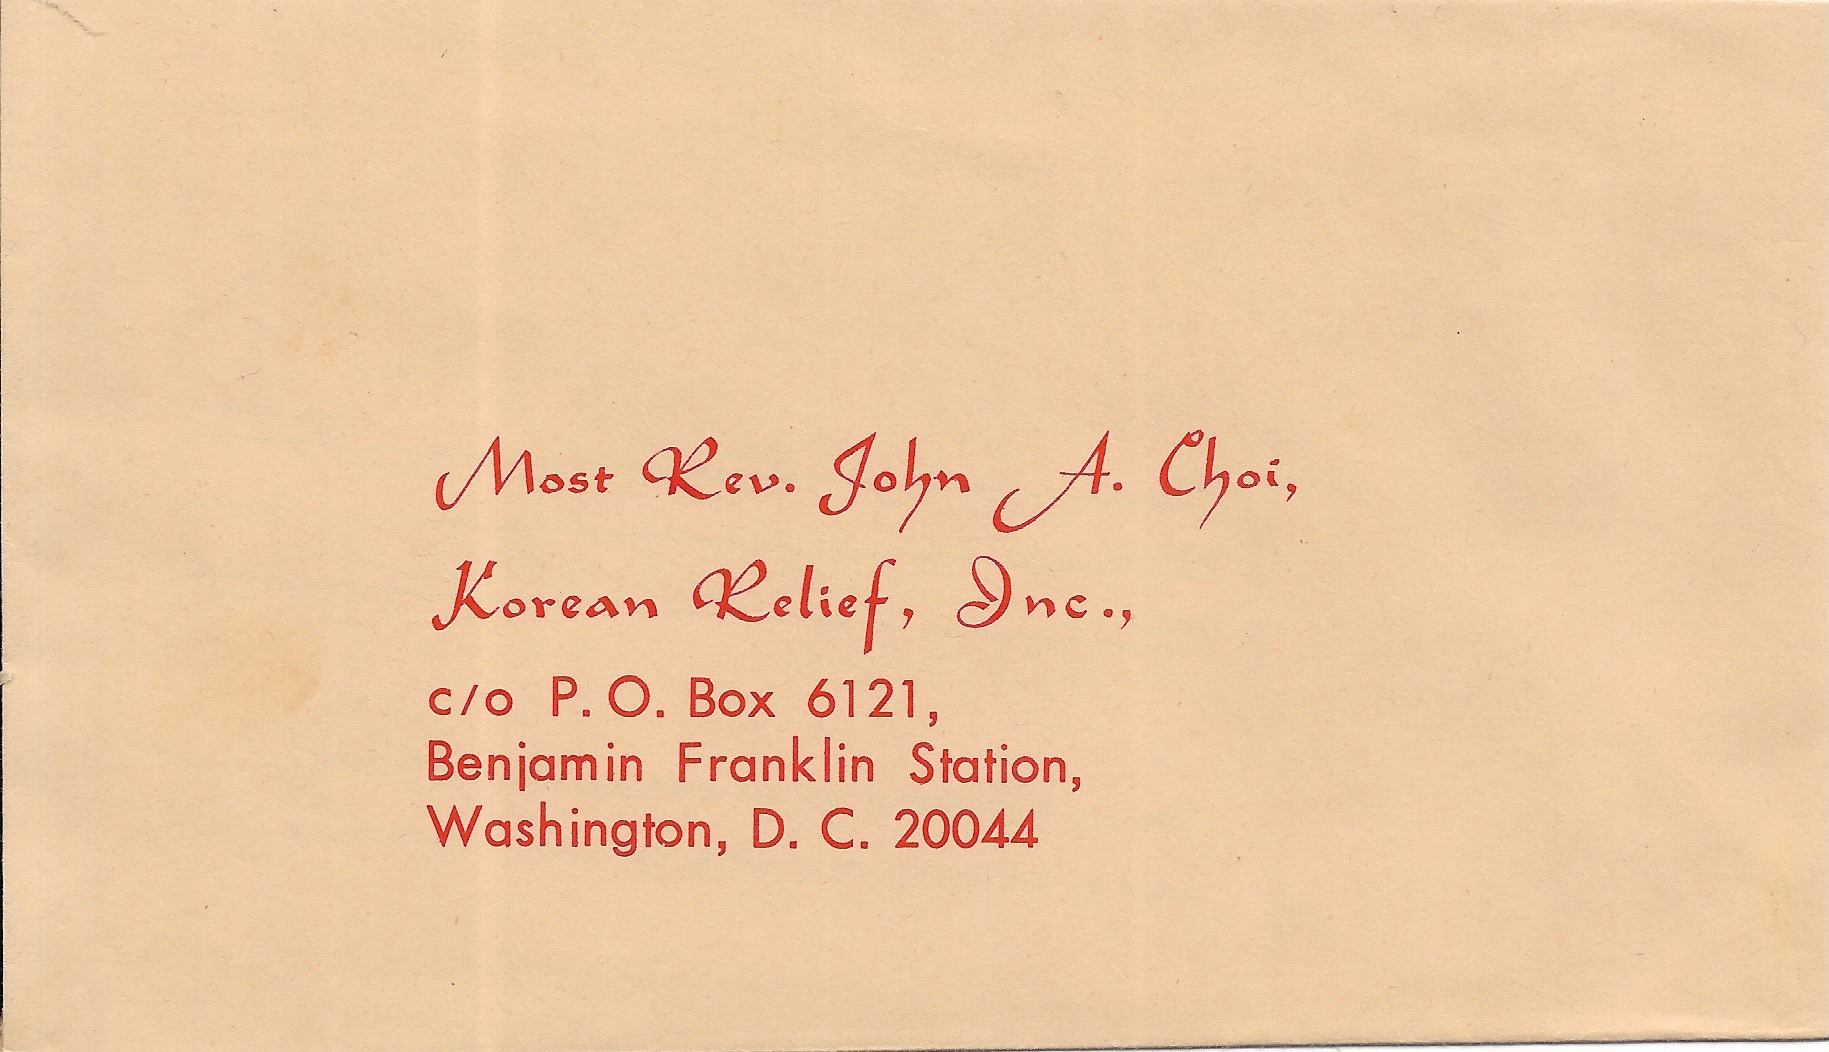 Most Rev. John A. Choi,
Korean Relief, Inc.,
c/o P. O. Box 6121,
Benjamin Franklin Station,
Washington, D. C. 20044